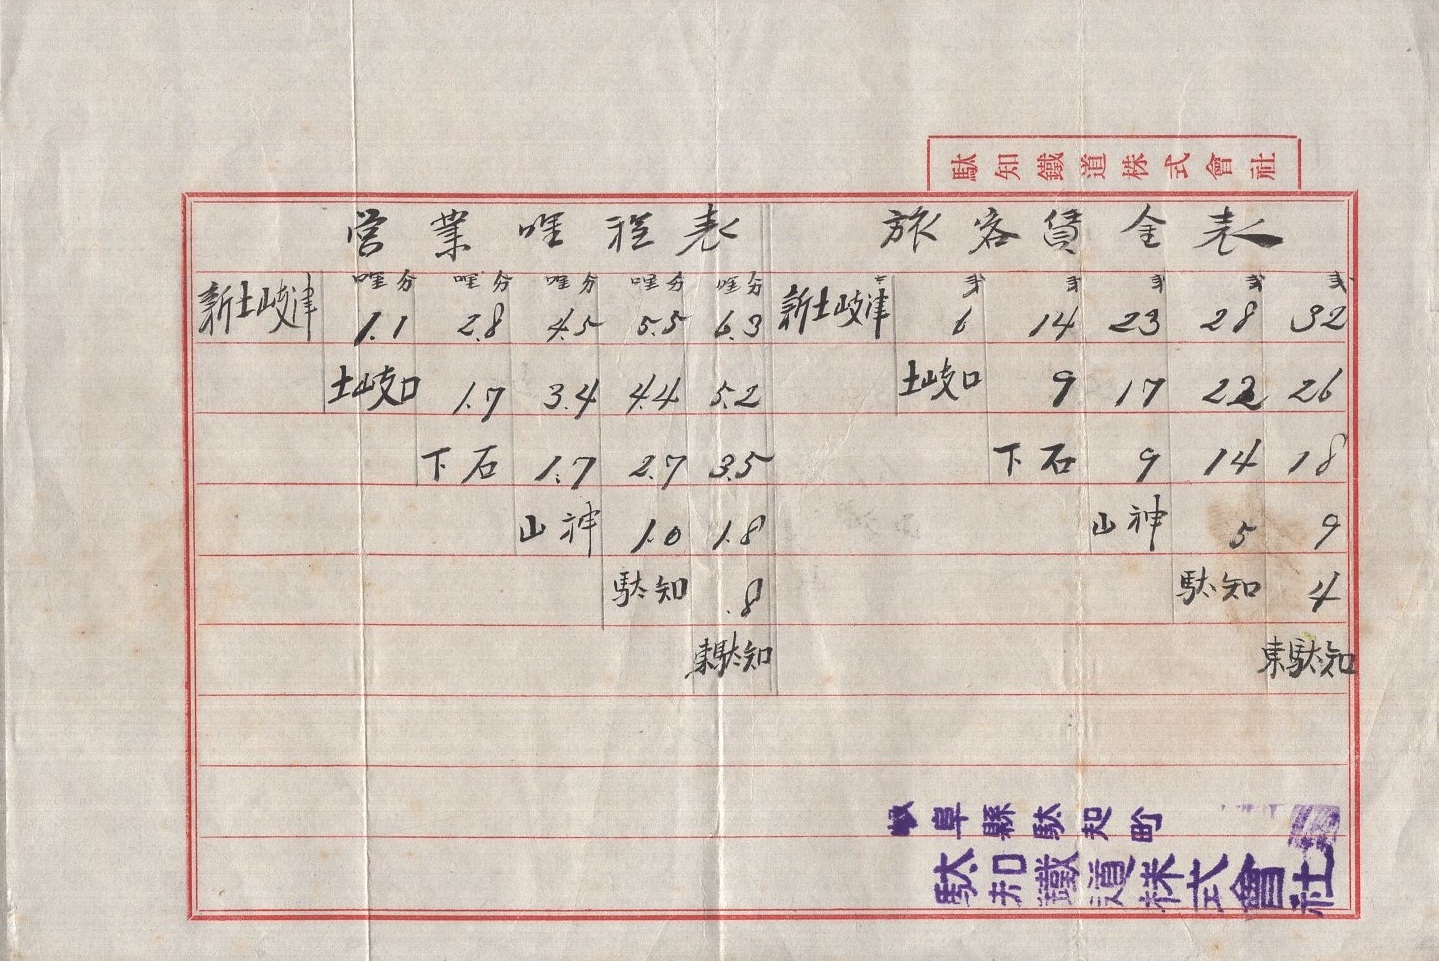 駄知鐵道株式會社
営業粁程表 旅客賃金表
粁分 粁分 粁分 粁分 粁分
新土岐津 1.1 2.8 4.5 5.5 6.3 新土岐津 6 14 23 28 32
土岐口 1.7 3.4 4.4 5.2 土岐口 9 17 22 26
下石 1.7 2.7 3.5 下石 9 14 18
山神 1.0 1.8 山神 5 9
駄知 .8 駄知 4
東駄知 東駄知
阜縣駄知町
駄知鐵道株式會社